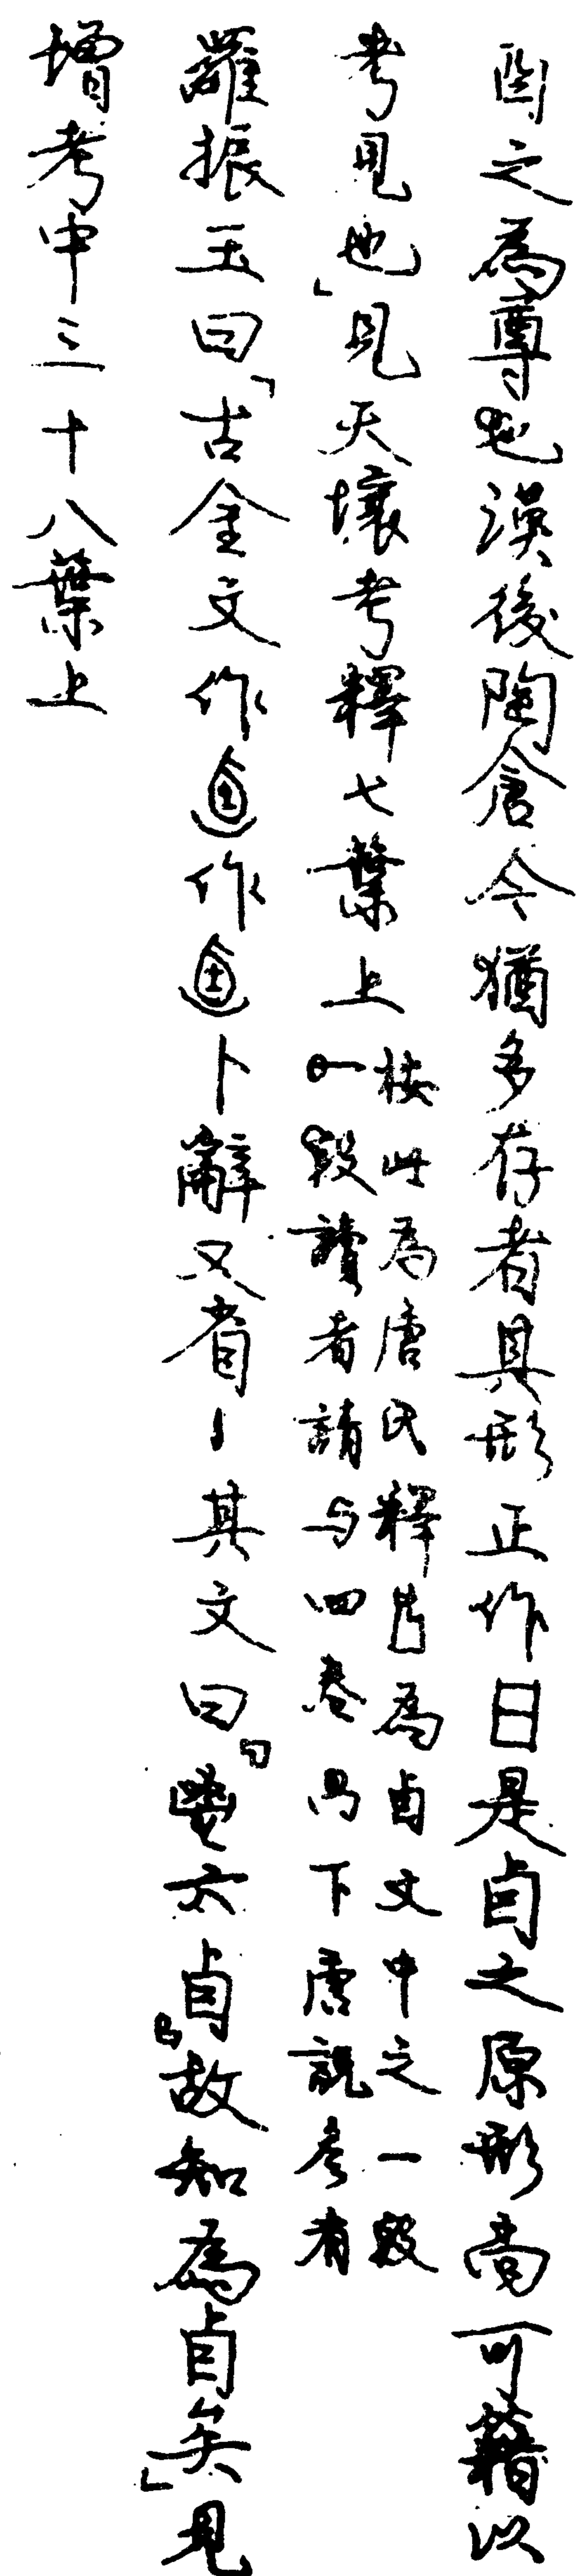 卣之為尊也漢後陶倉今猶多存者其形正作日是卣之原形尚可藉以
考見也」見天壤考釋七葉上
按此為唐氏釋為卣文中之一段
一段讀者請与四卷下唐說參看
羅振玉曰「古金文作作卜辭又省其文曰『鬯六卣』故知為卣矣」見
增考中三十八葉上